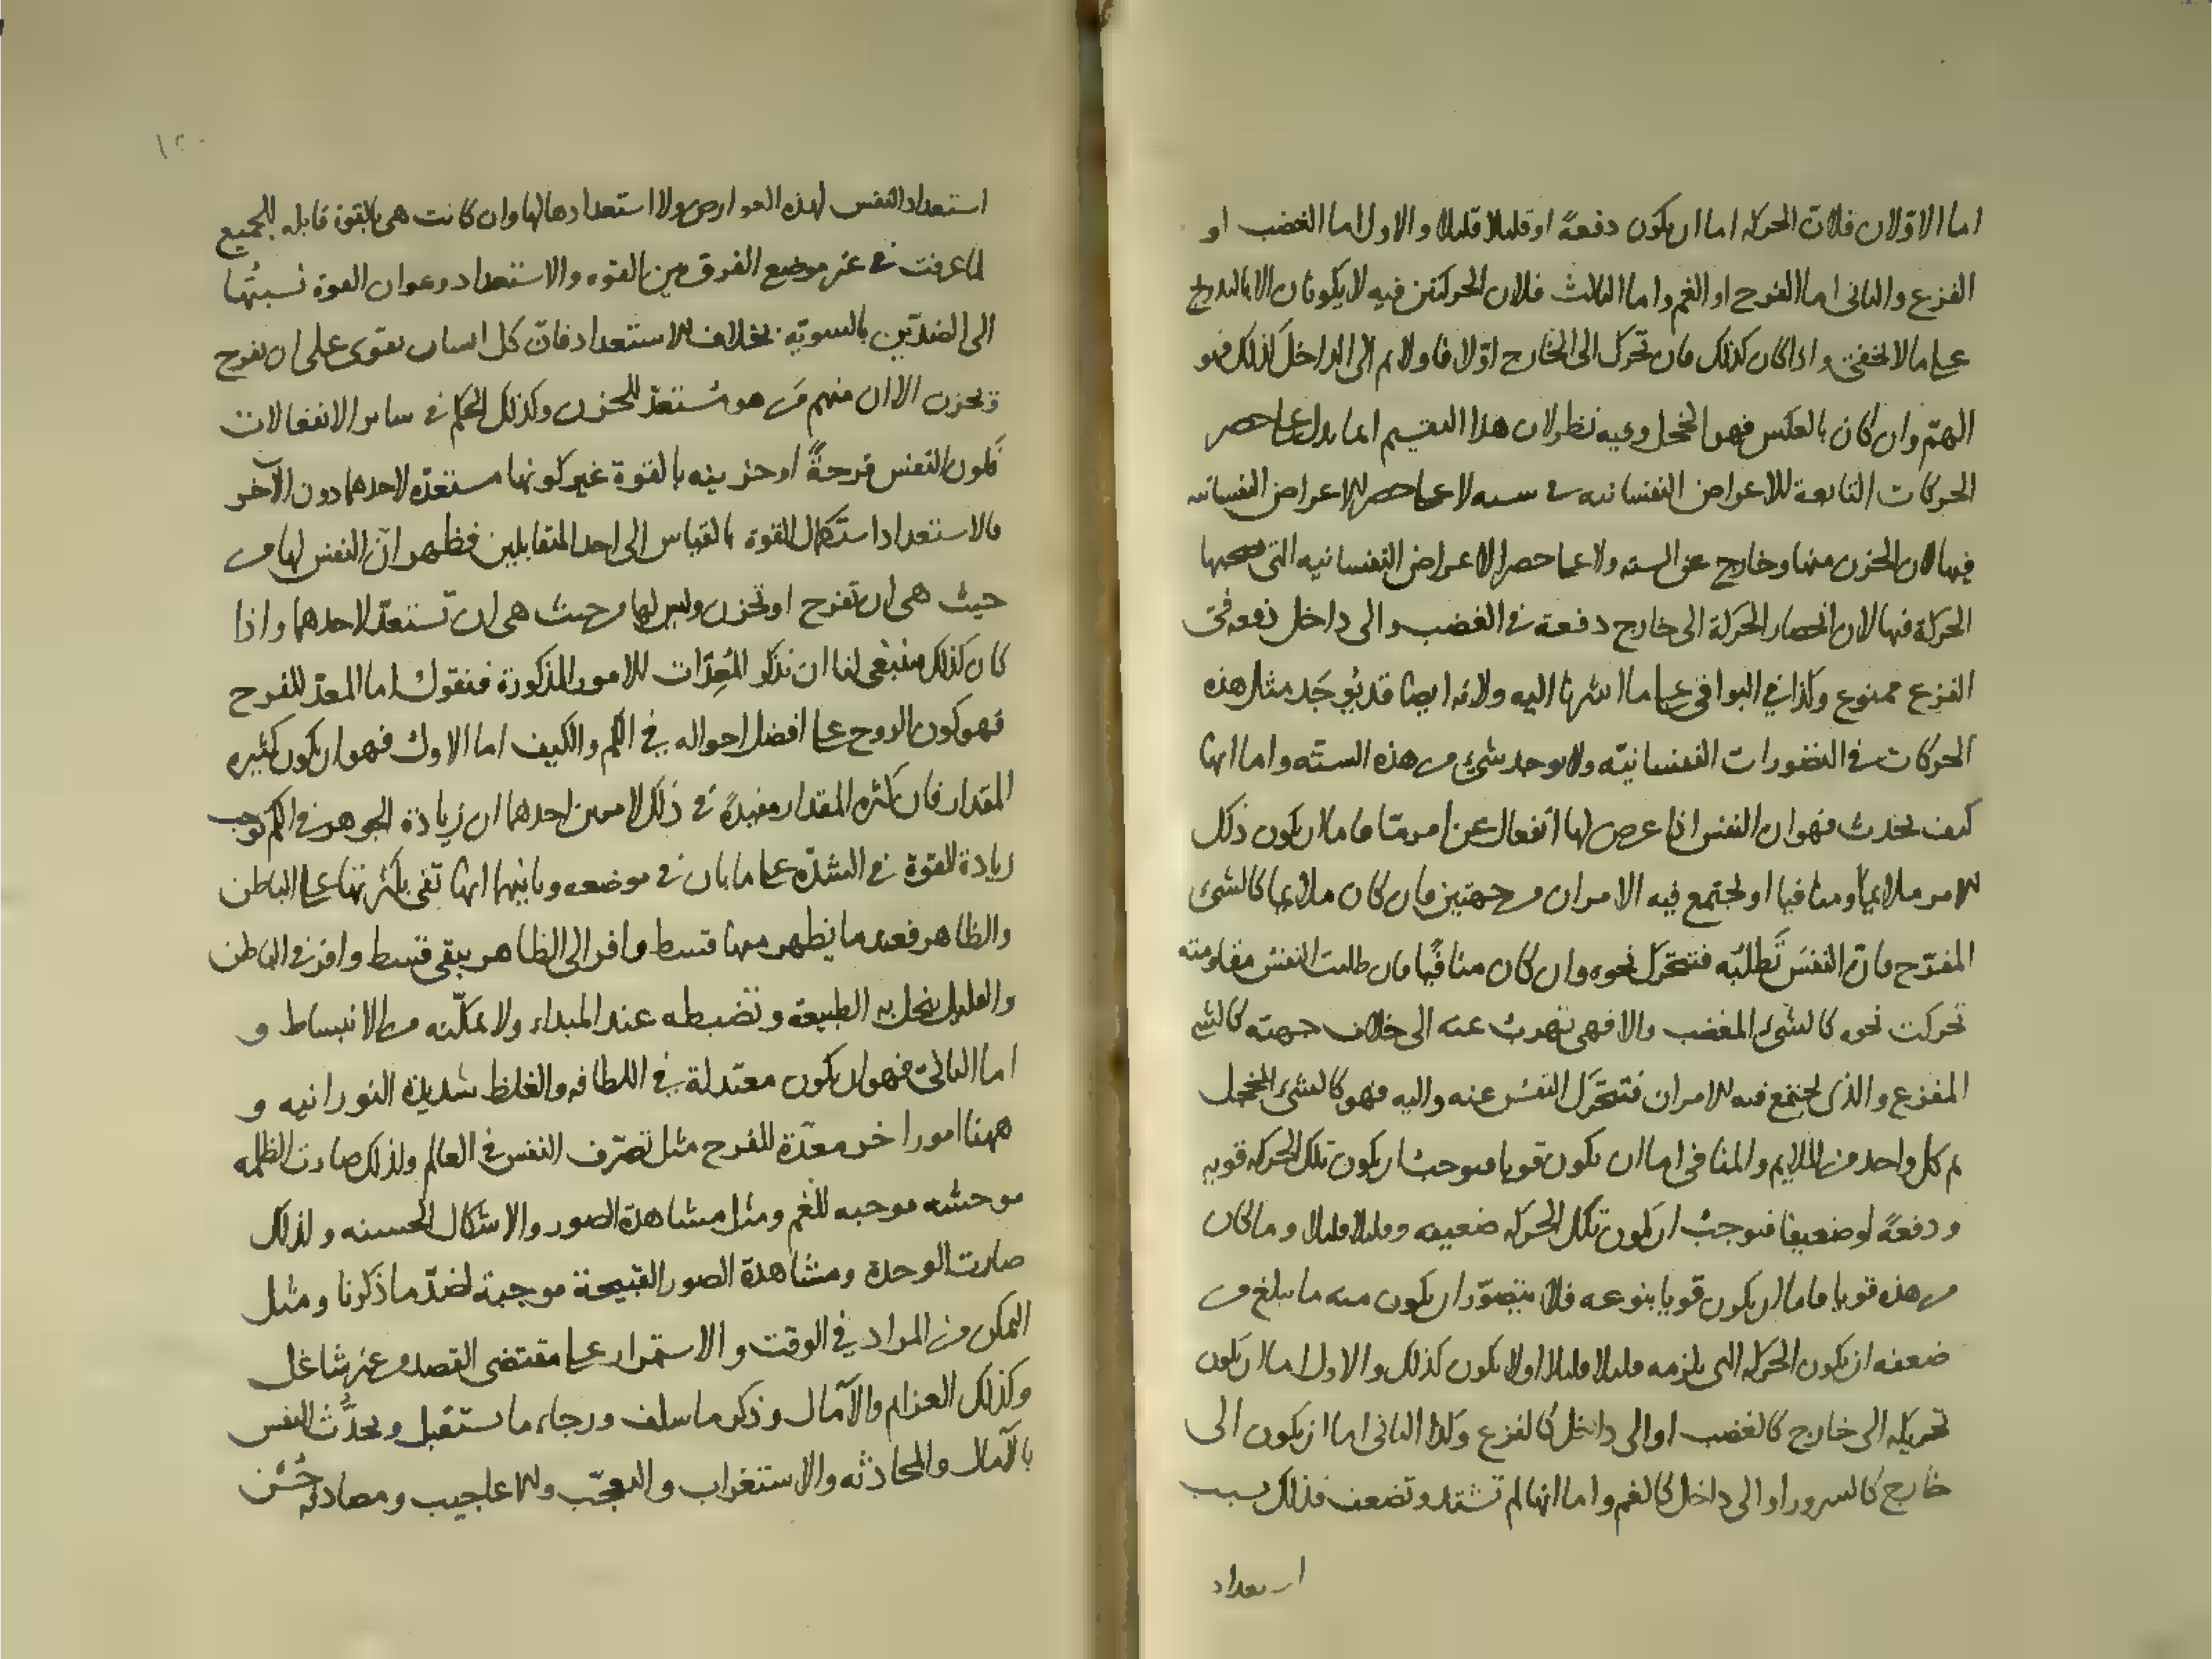 اما الاوّلان فلانّ الحركه اما ان يكون دفعةً او قليلا قليلا والاول اما الغضب او
الفزع والثانى اما الفرح او الغم واما الثالث فلان الحركتين فيه لا يكونان الا بالتدريج
على ما لا يخفى واذا كان كذلك فان تحرك الى الخارج اوّلا فاولا ثم الى الداخل كذلك فهو
الهمّ وان كان بالعكس فهو الخجل وفيه نظر لان هذا التقسيم انما يدل على حصر
الحركات التابعة للاعراض النفسانيه فى سته لا على حصر الاعراض النفسانيه
فيها لان الحزن منها وخارج عن السته ولا على حصر الاعراض النفسانيه التى تصحبها
الحركة فيها لان انحصار الحركة الى خارج دفعة فى الغضب والى داخل دفعه فى
الفزع ممنوع وكذا فى البواقى على ما اشرنا اليه ولانه ايضا قد يُوجَد مثل هذه
الحركات فى التصورات النفسانيّه ولا يوجد شئ من هذه الستّه واما انها
كيف يحدث فهو ان النفس اذا عرض لها انفعال عن امر مّا فاما ان يكون ذلك
الامر ملايما او منافيا او يجتمع فيه الامران من جهتين فان كان ملايما كالشئ
المفرّح فانّ النفسَ تَطلبُه فتتحرّك نحوه وان كان منافيًا فان طلبت النفسُ مقاومته
تحركت نحوه كالشئ المغضب والا فهى تهرب عنه الى خلاف جهته كالشئ
المفزع والذى يجتمع فيه الامران فتتحرّك النفسُ عنه واليه فهو كالشئ المخجل
ثم كل واحد من الملايم والمنافى اما ان يكون قويا فيوجب ان يكون تلك الحركه قويه
ودفعةً او ضعيفا فيوجب ان يكون تلك الحركه ضعيفه وقليلا قليلا وما كان
من هذه قويا فاما ان يكون قويا بنوعه فلا يتصوّر ان يكون منه ما يبلغ من
ضعفه ان يكون الحركه التى يلزمه قليلا قليلا او لا يكون كذلك والاول اما ان يكون
تحريكه الى خارج كالغضب او الى داخل كالفزع وكذا الثانى اما ان يكون الى
خارج كالسرور او الى داخل كالغم واما انها لم تشتد وتضعف فذلك بسبب
استعداد
استعداد النفس لهذه العوارض ولا استعدادها لها وان كانت هى بالقوة قابله للجميع
لما عرفت فى غير موضع الفرق بين القوه والاستعداد وهو ان القوة نسبتُها
الى الضدّين بالسويّه بخلاف الاستعداد فانّ كل انسان يقوى على ان يفرح
ويحزن الا ان منهم مَن هو مُستعدّ للحزن وكذلك الحكم فى ساير الانفعالات
فكون النفس فرحةً او حزينه بالقوة غير كونها مستعدّه لاحدهما دون الآخر
فالاستعداد استكمال القوة بالقياس الى احد المتقابلين فظهر انّ النفس لها من
حيث هى ان تفرح او تحزن وليس لها من حيث هى ان تستعدّ لاحدهما واذا
كان كذلك فينبغى لنا ان نذكر المُعِدّات للامور المذكورة فنقول اما المعدّ للفرح
فهو كون الروح على افضل احواله فى الكم والكيف اما الاول فهو ان يكون كثيره
المقدار فان كثره المقدار مفيدةً فى ذلك لامرين احدهما ان زيادة الجوهر فى الكم توجب
زيادة القوة فى الشدّه على ما بان فى موضعه وثانيهما انها تفى بكثرتها على الباطن
والظاهر فعند ما يظهر منها قسط وافر الى الظاهر يبقى قسط وافر فى الباطن
والقليل يبخل به الطبيعة وتضبطه عند المبداء ولا تمكّنه من الانبساط و
اما الثانى فهو ان يكون معتدلة فى اللطافه والغلظ شديدة النورانيه و
ههنا امور اخر معدّة للفرح مثل تصرّف النفس فى العالم ولذلك صارت الظلمه
موحشه موجبه للغم ومثل مشاهدة الصور والاشكال الحسنه ولذلك
صارت الوحدة ومشاهدة الصور القبيحة موجبة لضدّ ما ذكرنا ومثل
التمكن من المراد فى الوقت والاستمرار على مقتضى القصد من غير شاغل
وكذلك العزايم والآمال وذكر ما سلف ورجاء ما يستقبل وتحدُّث النفس
بالآمال والمحادثه والاستغراب والتعجّب والاعاجيب ومصادفه حُسْن